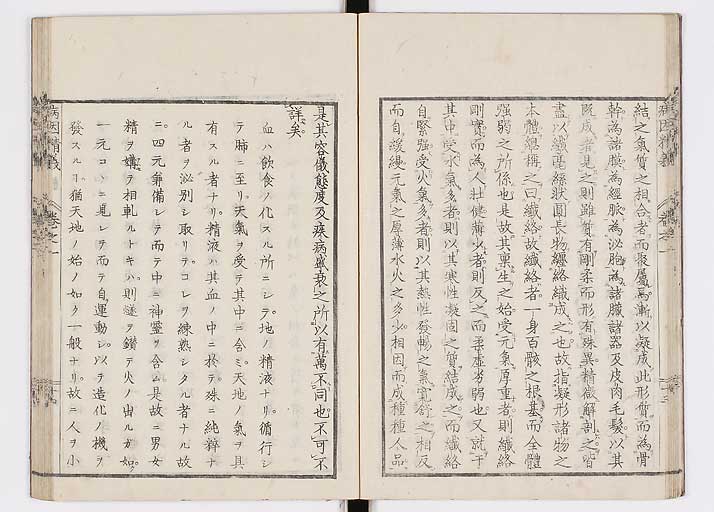 結之氣質之相合者而聚屬焉漸以凝成此形質而為骨
幹為諸膜為經脈為泌胞為諸臓諸器及皮肉毛髮以其
既成者見之則雖質有剛柔而形有殊異精微解剖之皆
盡以纖毫絲狀圓長物纏絡織成之也故指凝形諸物之
本體總稱之曰纖絡故纖絡者一身百骸之根基而全體
强弱之所係也是故其稟生之始受元氣厚重者則纖絡
剛實而為人壯健薄少者則反之而柔虛劣弱也又就于
其中受水氣多者則以其寒性凝固之質結成之而纖絡
自緊强受火氣多者則以其熱性發暢之氣寬舒之相反
而自緩縵元氣之厚薄水火之多少相因而成種種人品
病因精義 卷之一
是其容儀態度及疾病盛衰之所以有萬不同也不可不
詳矣
血ハ飲食ノ化スル所ニシテ地ノ精液ナリ循行シ
テ肺ニ至リ天氣ヲ受テ其中ニ含ミ天地ノ氣ヲ具
有スル者ナリ精液ハ其血ノ中ニ於テ殊ニ純粹ナ
ル者ヲ泌別シ取リテコレヲ練熟シタル者ナル故
ニ四元ヲ兼備シテ而テ中ニ神靈ヲ含ム是故ニ男女
精ヲ媾テ相軋ルトキハ則燧ヲ鑽テ火ノ出ルガ如ク
一元コヽニ見レテ而テ自運動シ以テ造化ノ機ヲ
發スルヿ猶天地ノ始ノ如ク一般ナリ故ニ人ヲ小
病因精義 卷之一